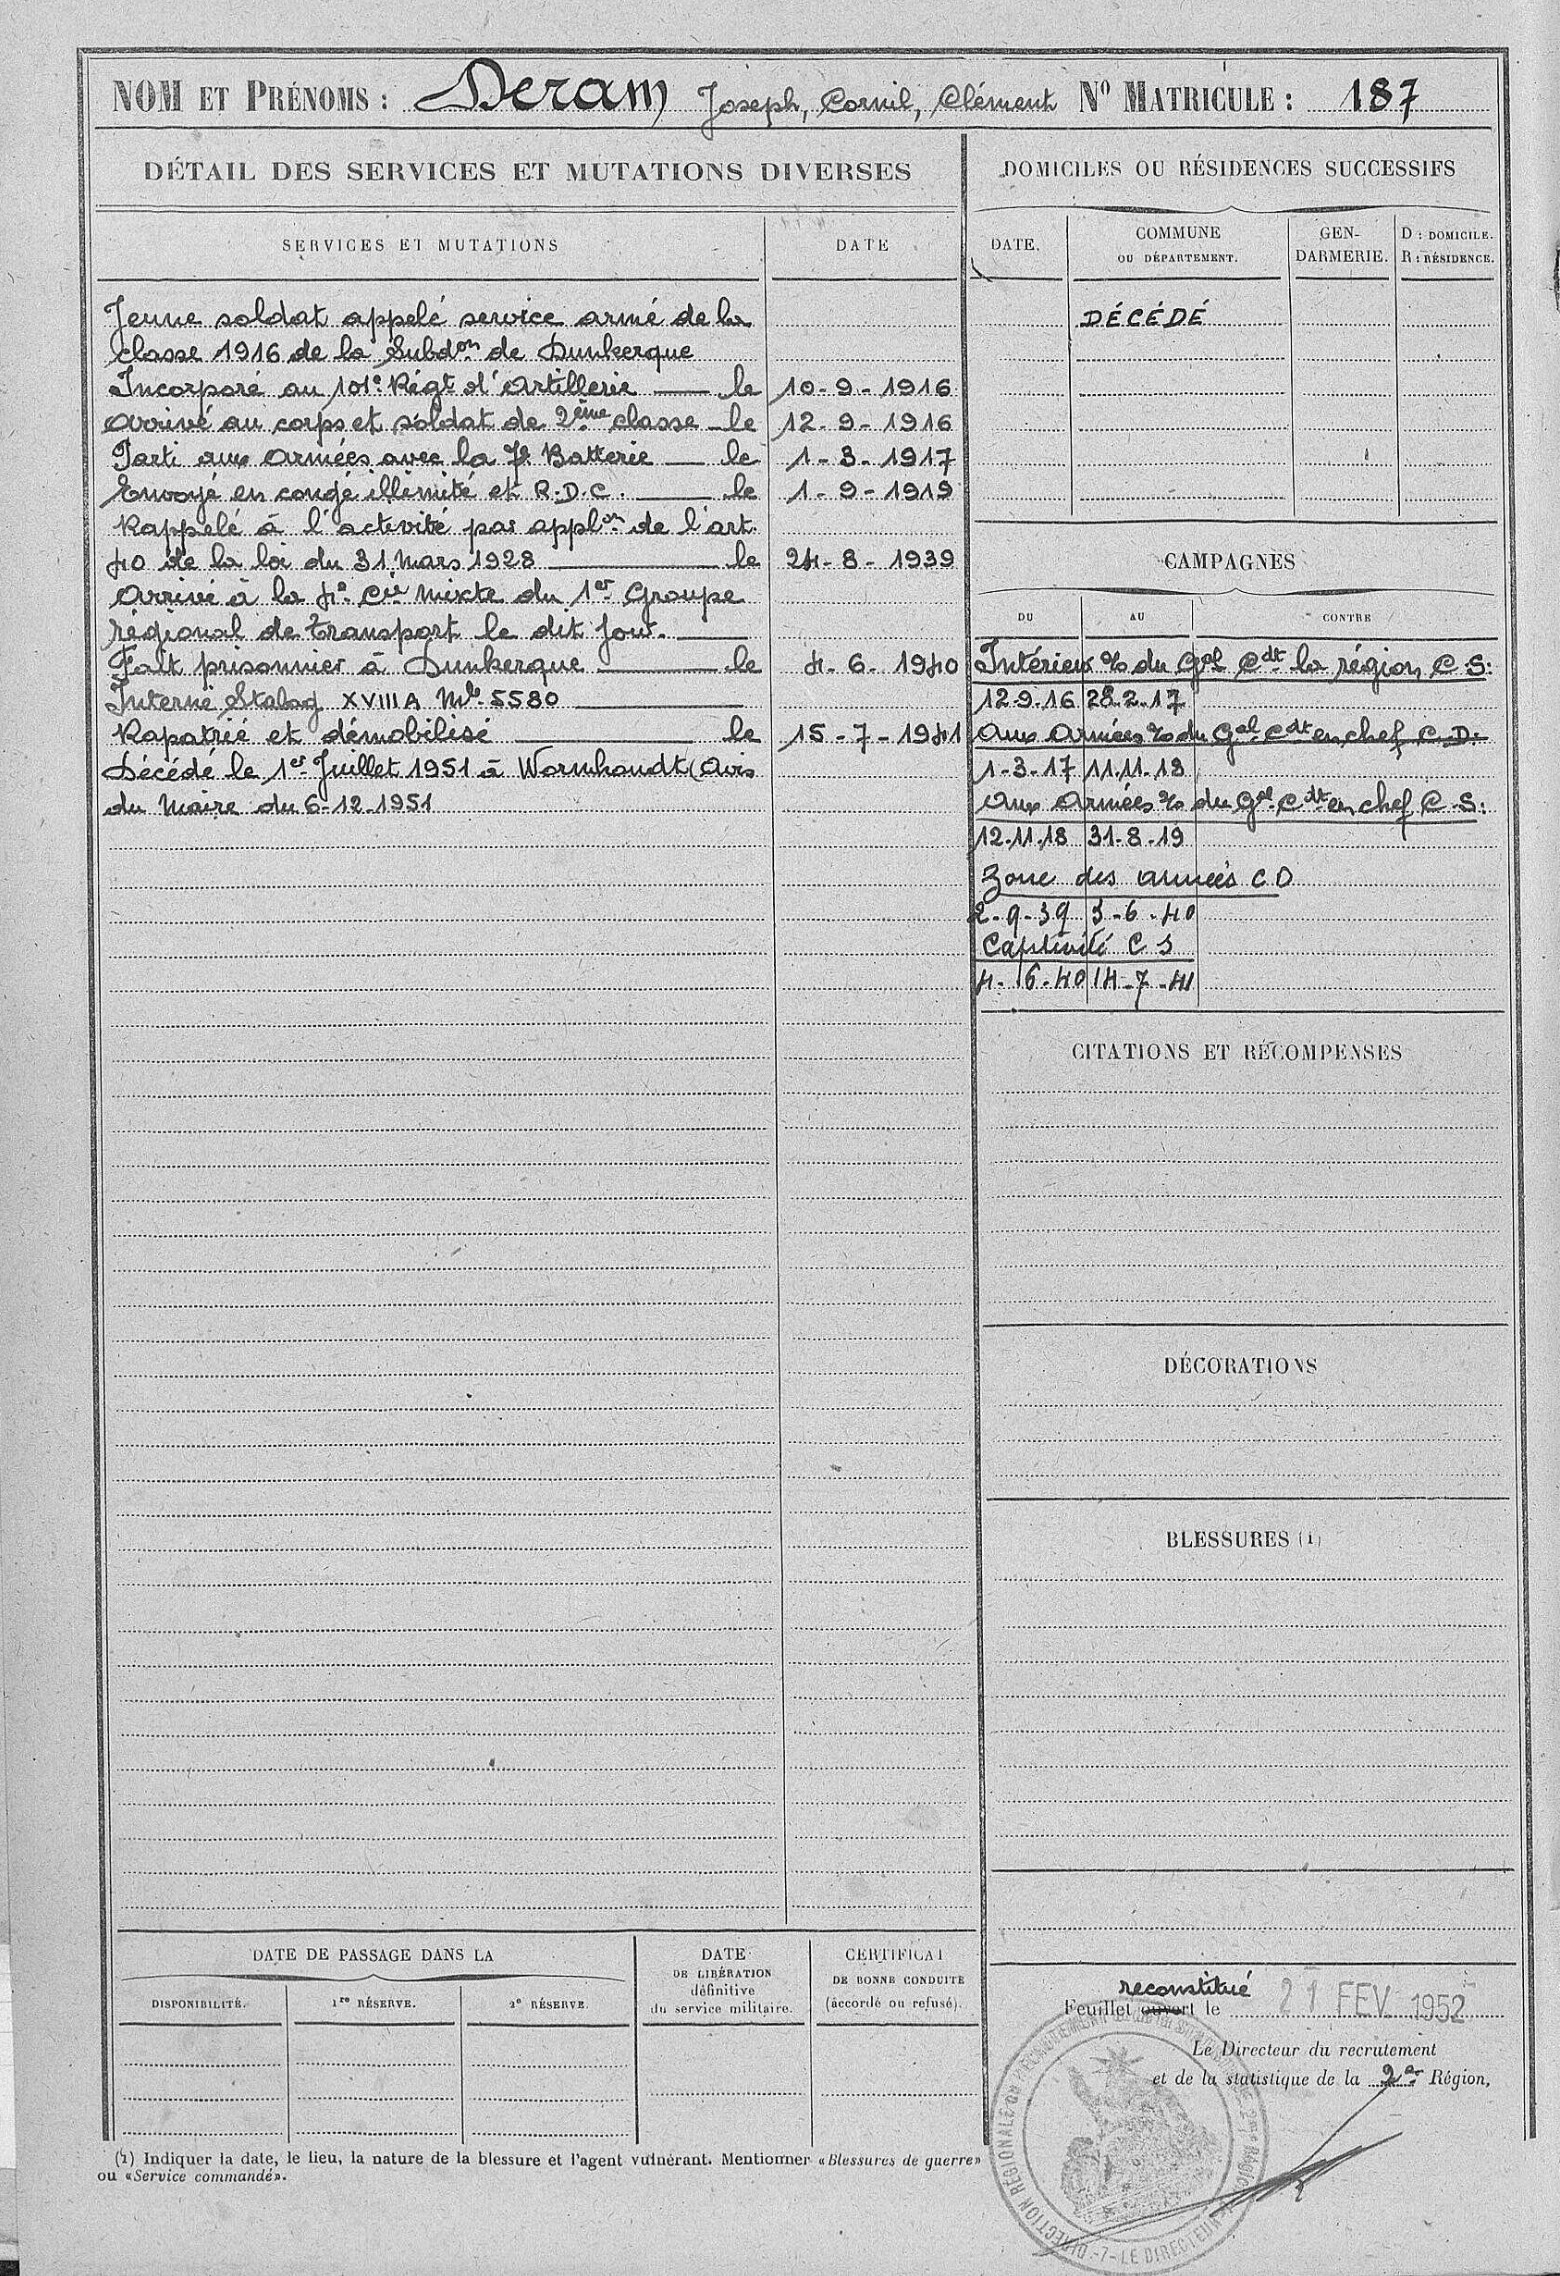 NOM ET PRÉNOMS : Deram Joseph, Cornil, Clément No MATRICULE : 187
DÉTAIL DES SERVICES ET MUTATIONS DIVERSES
SERVICES ET MUTATIONS
DATE
Jeune soldat appelé service armé de la
classe 1916 de la Subdon de Dunkerque
Incorporé au 101e Régt d'Artillerie — le 10-9-1916
Arrivé au corps et soldat de 2ème classe le 12-9-1916
Parti aux Armées avec la 7e Batterie — le 1-3-1917
Envoyé en congé illimité et R.D.C. — le 1-9-1919
Rappelé à l'activité par applon de l'art.
40 de la loi du 31 Mars 1928 — le 24-8-1939
Arrivé à la 4e Cie Mixte du 1er Groupe
régional de transport le dit jour.
Fait prisonnier à Dunkerque — le 4-6-1940
Interné Stalag XVIII A Mle 5580
Rapatrié et démobilisé — le 15-7-1941
Décédé le 1er Juillet 1951 à Wormhoudt (Avis
du Maire du 6-12-1951
DOMICILES OU RÉSIDENCES SUCCESSIFS
DATE.
COMMUNE
OU DÉPARTEMENT.
GEN-
DARMERIE.
D : DOMICILE.
R : RÉSIDENCE.
DÉCÉDÉ
CAMPAGNES
DU
AU
CONTRE
Intérieur % du Gal Cdt la région C.S.
12-9-16 28.2.17
Aux Armées % du Gal Cdt en chef C.D.
1-3-17 11.11.18
Aux Armées % du Gal Cdt en chef C.S.
12.11.18 31-8-19
Zone des armées CD
2-9-39 3-6-40
Captivité C S
4-6-40 14-7-41
CITATIONS ET RÉCOMPENSES
DÉCORATIONS
BLESSURES (1)
DATE DE PASSAGE DANS LA
DISPONIBILITÉ.
1re RÉSERVE.
2e RÉSERVE.
DATE
DE LIBÉRATION
définitive
du service militaire.
CERTIFICAT
DE BONNE CONDUITE
(accordé ou refusé).
reconstitué
Feuillet ouvert le 21 FEV 1952
Le Directeur du recrutement
et de la statistique de la 2e Région,
DIRECTION RÉGIONALE DU RECRUTEMENT 2me Région
-7- LE DIRECTEUR
(1) Indiquer la date, le lieu, la nature de la blessure et l'agent vulnérant. Mentionner «Blessures de guerre»
ou «Service commandé».